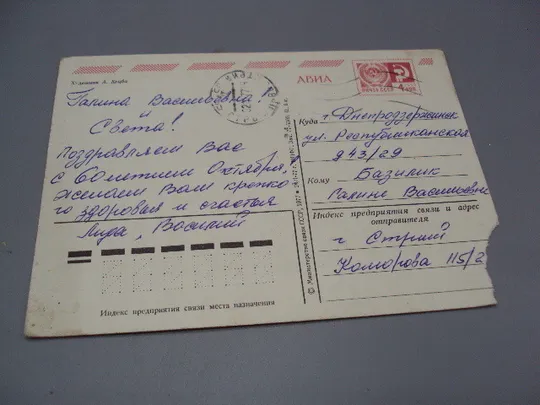 Художник А. Бойко
АВИА
ПОЧТА СССР
Галина Васильевна!
и
Света!
Поздравляем Вас
с 60-летием Октября,
желаем Вам крепко-
го здоровья и счастья
Лида, Василий
Индекс предприятия связи места назначения
© Министерство связи СССР, 1977
Куда г. Днепродзержинск
ул. Республиканская
943/29
Кому Базилик
Галине Васильевне
Индекс предприятия связи и адрес
отправителя
г. Стрый
Комарова 115/2